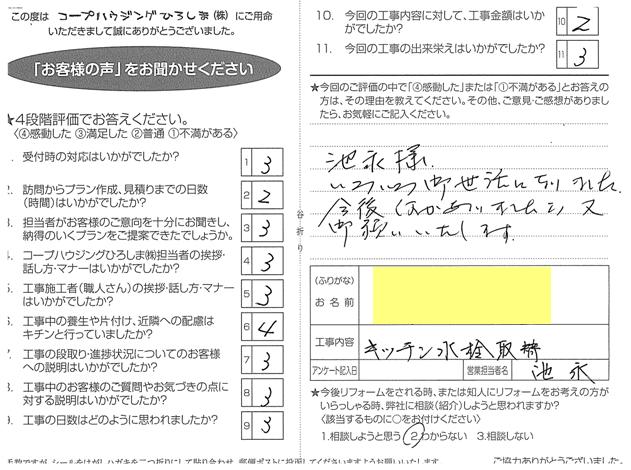 この度は コープハウジングひろしま(株) にご用命
いただきまして誠にありがとうございました。
「お客様の声」をお聞かせください
★4段階評価でお答えください。
〈④感動した ③満足した ②普通 ①不満がある〉
1. 受付時の対応はいかがでしたか?
1 3
2. 訪問からプラン作成、見積りまでの日数
(時間)はいかがでしたか?
2 2
3. 担当者がお客様のご意向を十分にお聞きし、
納得のいくプランをご提案できたでしょうか。
3 3
4. コープハウジングひろしま㈱担当者の挨拶・
話し方・マナーはいかがでしたか?
4 3
5. 工事施工者(職人さん)の挨拶・話し方・マナー
はいかがでしたか?
5 3
6. 工事中の養生や片付け、近隣への配慮は
キチンと行っていましたか?
6 4
7. 工事の段取り・進捗状況についてのお客様
への説明はいかがでしたか?
7 3
8. 工事中のお客様のご質問やお気づきの点に
対する説明はいかがでしたか?
8 3
9. 工事の日数はどのように思われましたか?
9 3
手数ですが、シールをはがしハガキを二つ折りにして貼り合わせ、郵便ポストに投函してくださいますようお願いいたします。
谷折り
10. 今回の工事内容に対して、工事金額はいか
がでしたか?
10 2
11. 今回の工事の出来栄えはいかがでしたか?
11 3
★今回のご評価の中で「④感動した」または「①不満がある」とお答え
の方は、その理由を教えてください。その他、ご意見・ご感想がありまし
たら、お気軽にご記入ください。
池永様
いろいろ御世話になりました
今後 何かありましたら 又
御願いいたします。
(ふりがな)
お名前
工事内容
キッチン水栓取替
アンケート記入日
営業担当者名
池永
★今後リフォームをされる時、または知人にリフォームをお考えの方が
いらっしゃる時、弊社に相談(紹介)しようと思われますか?
〈該当するものに○をお付けください〉
1.相談しようと思う 2.わからない 3.相談しない
ご協力ありがとうございました。